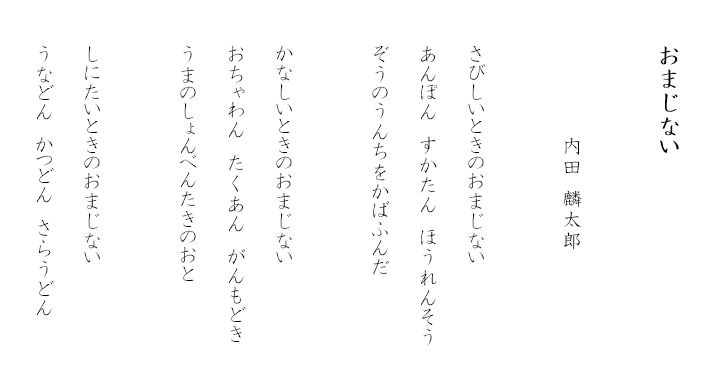 おまじない
内田　麟太郎
さびしいときのおまじない
あんぽん　すかたん　ほうれんそう
ぞうのうんちをかばふんだ
かなしいときのおまじない
おちゃわん　たくあん　がんもどき
うまのしょんべんたきのおと
しにたいときのおまじない
うなどん　かつどん　さらうどん